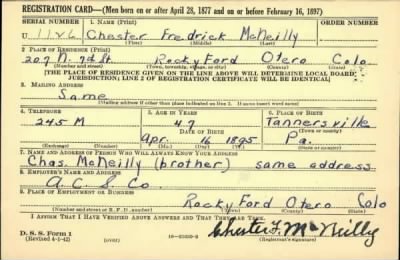 REGISTRATION CARD—(Men born on or after April 28, 1877 and on or before February 16, 1897)
SERIAL NUMBER 1. NAME (Print) ORDER NUMBER
U 1126 Chester Fredrick McNeilly
(First) (Middle) (Last)
2. PLACE OF RESIDENCE (Print)
207 N. 7th St. Rocky Ford Otero Colo
(Number and street) (Town, township, village, or city) (County) (State)
[THE PLACE OF RESIDENCE GIVEN ON THE LINE ABOVE WILL DETERMINE LOCAL BOARD
JURISDICTION; LINE 2 OF REGISTRATION CERTIFICATE WILL BE IDENTICAL]
3. MAILING ADDRESS
Same
(Mailing address if other than place indicated on line 2. If same insert word same)
4. TELEPHONE 5. AGE IN YEARS 6. PLACE OF BIRTH
245 M 47 Tannersville
DATE OF BIRTH (Town or county)
Apr. 1895 Pa.
(Exchange) (Number) (Mo.) (Day) (Yr.) (State or country)
7. NAME AND ADDRESS OF PERSON WHO WILL ALWAYS KNOW YOUR ADDRESS
Chas. McNeilly (brother) same address
8. EMPLOYER'S NAME AND ADDRESS
A. C. S. Co.
9. PLACE OF EMPLOYMENT OR BUSINESS
Rocky Ford Otero Colo
(Number and street or R. F. D. number) (Town) (County) (State)
I AFFIRM THAT I HAVE VERIFIED ABOVE ANSWERS AND THAT THEY ARE TRUE.
D. S. S. Form 1
(Revised 4-1-42) (over) Chester F. McNeilly
(Registrant's signature)